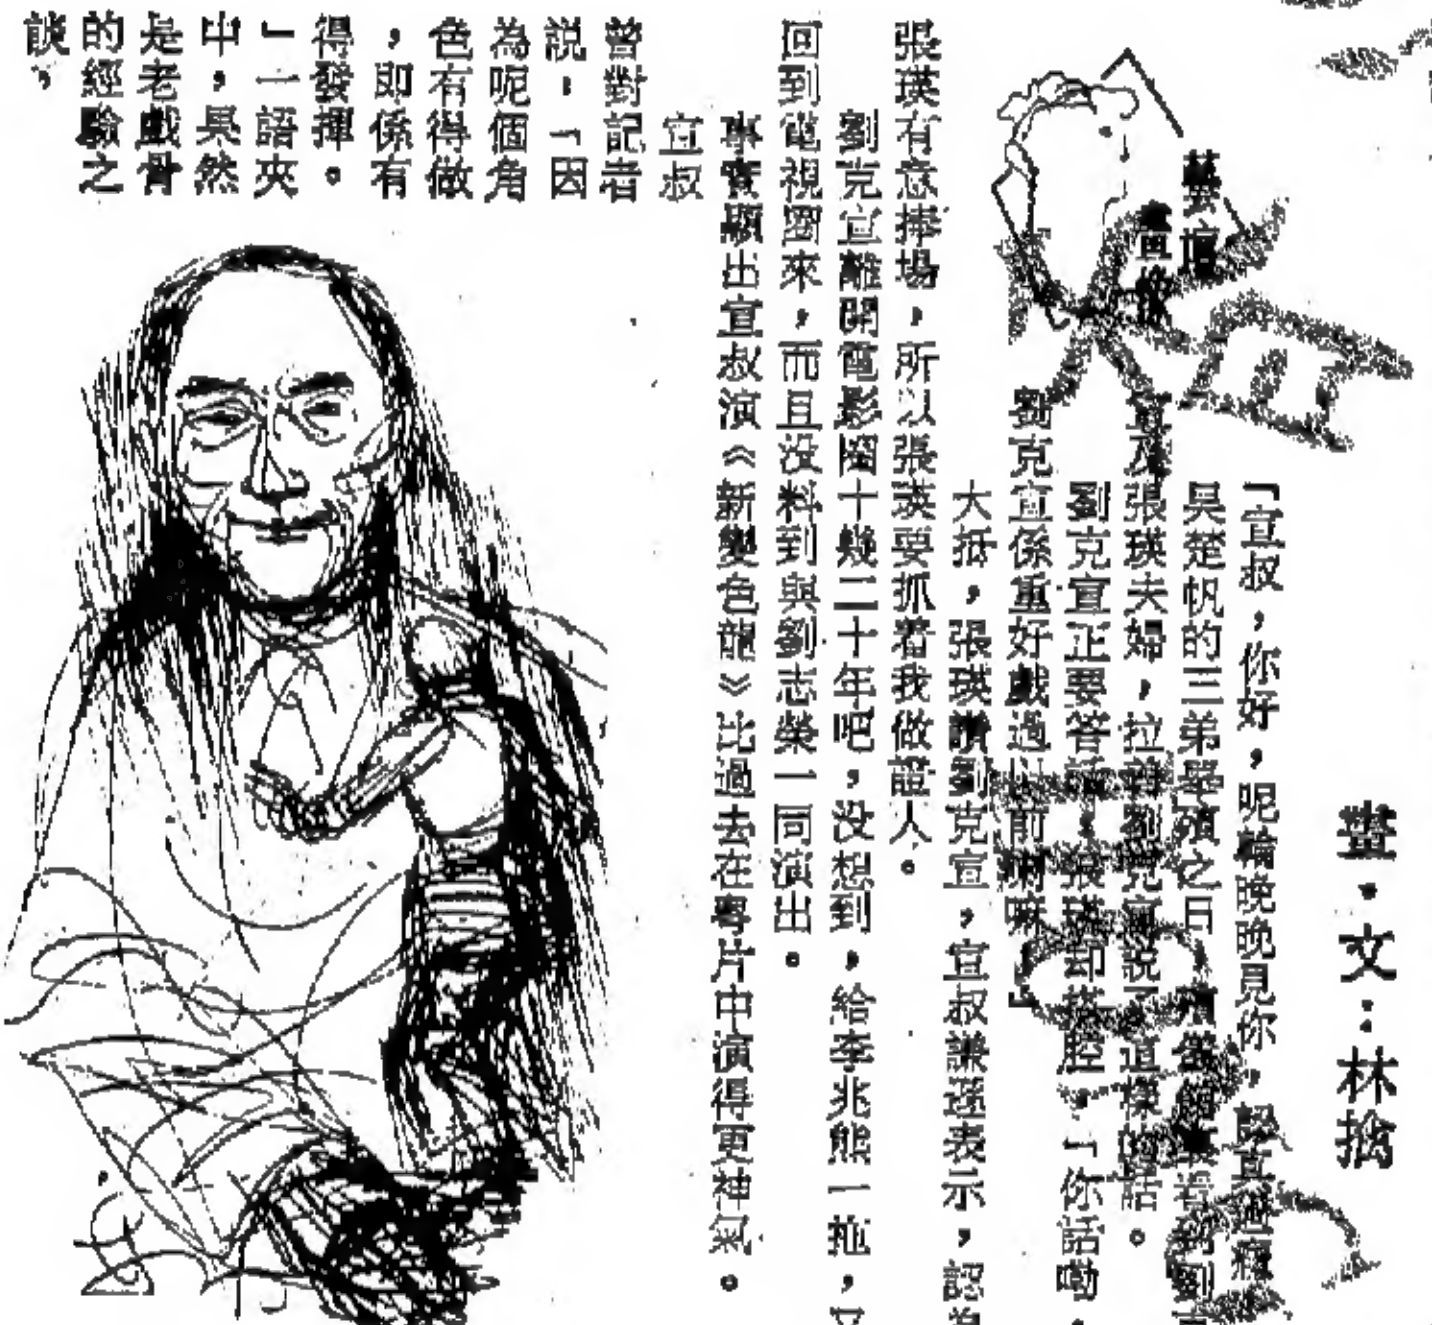 藝壇
畫像
畫・文：林擒
「宣叔，你好，呢輪晚晚見你，認真過癮
吳楚帆的三弟舉殯之日
張瑛夫婦，拉着劉克宣說了這樣的話。
劉克宣正要答話，張瑛却搭腔，「你話嘞，
劉克宣係重好戲過以前啊嘛！」
大抵，張瑛讚劉克宣，宣叔謙遜表示，認為
張瑛有意捧場，所以張瑛要抓着我做證人。
劉克宣離開電影圈十幾二十年吧，没想到，給李兆熊一拖，又
回到電視圈來，而且没料到與劉志榮一同演出。
事實顯出宣叔演《新變色龍》比過去在粵片中演得更神氣。
宣叔
曾對記者
説：「因
為呢個角
色有得做
，即係有
得發揮。
」一語夾
中，果然
是老戲骨
的經驗之
談。